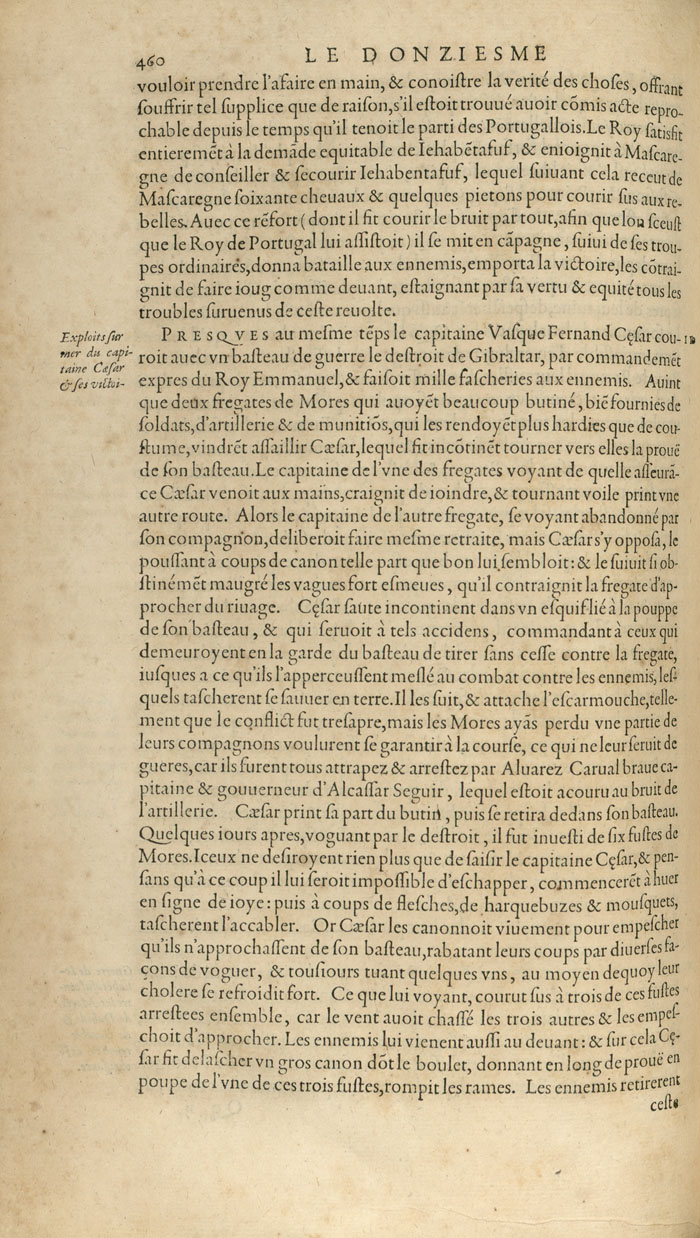 460
LE DONZIESME
vouloir prendre l'afaire en main, & conoiſtre la verité des choſes, offrant
ſouffrir tel ſupplice que de raiſon, s'il eſtoit trouué auoir cõmis acte repro-
chable depuis le temps qu'il tenoit le parti des Portugallois. Le Roy ſatisfit
entieremẽt à la demãde equitable de Iehabẽtafuf, & enioignit à Maſcare-
gne de conſeiller & ſecourir Iehabentafuf, lequel ſuiuant cela receut de
Maſcaregne ſoixante cheuaux & quelques pietons pour courir ſus aux re-
belles. Auec ce rẽfort (dont il fit courir le bruit par tout, afin que lon ſceuſt
que le Roy de Portugal lui aſſiſtoit) il ſe mit en cãpagne, ſuiui de ſes trou-
pes ordinaires, donna bataille aux ennemis, emporta la victoire, les cõtrai-
gnit de faire ioug comme deuant, eſtaignant par ſa vertu & equité tous les
troubles ſuruenus de ceſte reuolte.
Exploits ſur
mer du capi-
taine Cæſar
& ſes villoi-
PRESQVES au meſme tẽps le capitaine Vaſque Fernand Cęſar cou-
roit auec vn baſteau de guerre le deſtroit de Gibraltar, par commandemẽt
expres du Roy Emmanuel, & faiſoit mille faſcheries aux ennemis. Auint
que deux fregates de Mores qui auoyẽt beaucoup butiné, biẽ fournies de
ſoldats, d'artillerie & de munitiõs, qui les rendoyẽt plus hardies que de cou-
ſtume, vindrẽt aſſaillir Cæſar, lequel fit incõtinẽt tourner vers elles la prouë
de ſon baſteau. Le capitaine de l'vne des fregates voyant de quelle aſſeurã-
ce Cæſar venoit aux mains, craignit de ioindre, & tournant voile print vne
autre route. Alors le capitaine de l'autre fregate, ſe voyant abandonné par
ſon compagnon, deliberoit faire meſme retraite, mais Cæſar s'y oppoſa, le
pouſſant à coups de canon telle part que bon lui ſembloit: & le ſuiuit ſi ob-
ſtinémẽt maugré les vagues fort eſmeues, qu'il contraignit la fregate d'ap-
procher du riuage. Cęſar ſaute incontinent dans vn eſquif lié à la pouppe
de ſon baſteau, & qui ſeruoit à tels accidens, commandant à ceux qui
demeuroyent en la garde du baſteau de tirer ſans ceſſe contre la fregate,
iuſques a ce qu'ils l'apperceuſſent meſlé au combat contre les ennemis, leſ-
quels taſcherent ſe ſauuer en terre. Il les ſuit, & attache l'eſcarmouche, telle-
ment que le conflict fut treſapre, mais les Mores ayãs perdu vne partie de
leurs compagnons voulurent ſe garantir à la courſe, ce qui ne leur ſeruit de
gueres, car ils furent tous attrapez & arreſtez par Aluarez Carual braue ca-
pitaine & gouuerneur d'Alcaſſar Seguir, lequel eſtoit acouru au bruit de
l'artillerie. Cæſar print ſa part du butin, puis ſe retira dedans ſon baſteau.
Quelques iours apres, voguant par le deſtroit, il fut inueſti de ſix fuſtes de
Mores. Iceux ne deſiroyent rien plus que de ſaiſir le capitaine Cęſar, & pen-
ſans qu'à ce coup il lui ſeroit impoſſible d'eſchapper, commencerẽt à huer
en ſigne de ioye: puis à coups de fleſches, de harquebuzes & mouſquets,
taſcherent l'accabler. Or Cæſar les canonnoit viuement pour empeſcher
qu'ils n'approchaſſent de ſon baſteau, rabatant leurs coups par diuerſes fa-
çons de voguer, & touſiours tuant quelques vns, au moyen dequoy leur
cholere ſe refroidit fort. Ce que lui voyant, courut ſus à trois de ces fuſtes
arreſtees enſemble, car le vent auoit chaſſé les trois autres & les empeſ-
choit d'approcher. Les ennemis lui vienent auſſi au deuant: & ſur cela Cę-
ſar fit delaſcher vn gros canon dõt le boulet, donnant en long de prouë en
poupe de l'vne de ces trois fuſtes, rompit les rames. Les ennemis retirerent
ceſte